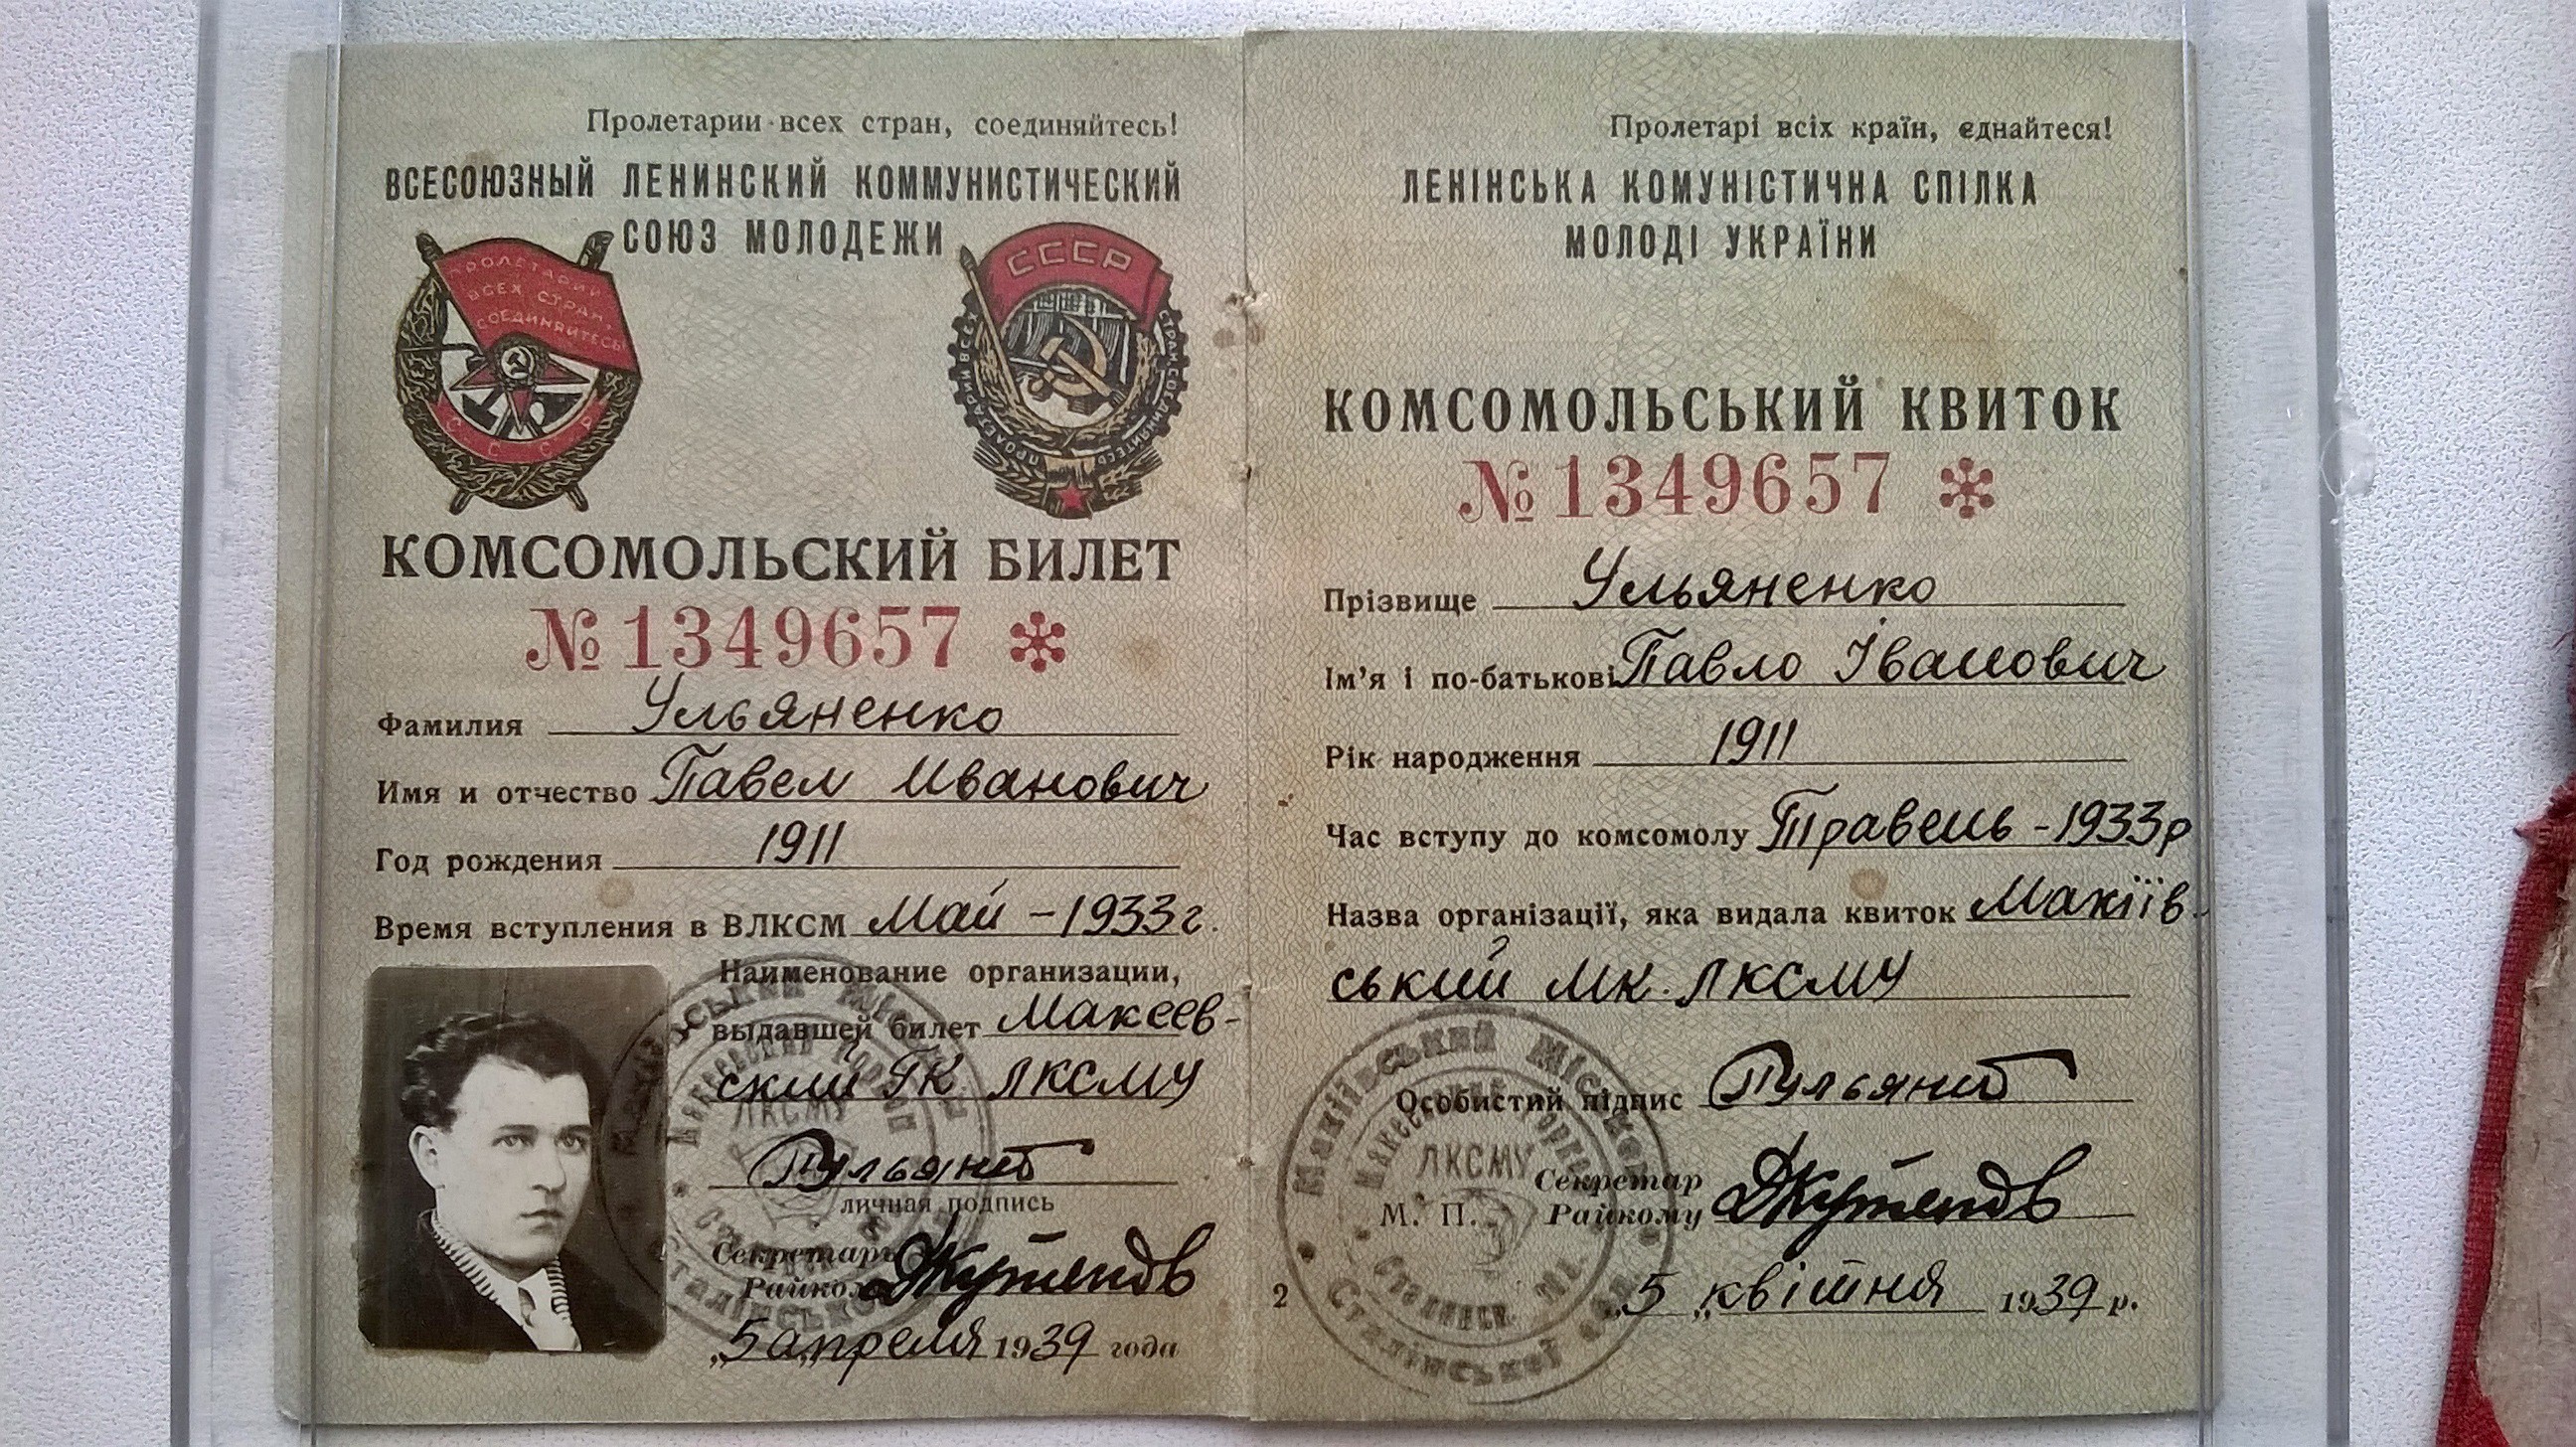 Пролетарии всех стран, соединяйтесь!
ВСЕСОЮЗНЫЙ ЛЕНИНСКИЙ КОММУНИСТИЧЕСКИЙ
СОЮЗ МОЛОДЕЖИ
ПРОЛЕТАРИИ
ВСЕХ СТРАН,
СОЕДИНЯЙТЕСЬ
СССР
СССР
ПРОЛЕТАРИИ ВСЕХ СТРАН, СОЕДИНЯЙТЕСЬ
КОМСОМОЛЬСКИЙ БИЛЕТ
№ 1349657
Фамилия Ульяненко
Имя и отчество Павел Иванович
Год рождения 1911
Время вступления в ВЛКСМ Май - 1933 г.
Наименование организации,
выдавшей билет Макеев-
ский ГК ЛКСМУ
личная подпись
Секретарь
Райкома
„5„ апреля 1939 года
Пролетарі всіх країн, єднайтеся!
ЛЕНІНСЬКА КОМУНІСТИЧНА СПІЛКА
МОЛОДІ УКРАЇНИ
КОМСОМОЛЬСЬКИЙ КВИТОК
№ 1349657
Прізвище Ульяненко
Ім'я і по-батькові Павло Іванович
Рік народження 1911
Час вступу до комсомолу Травень - 1933 р
Назва організації, яка видала квиток Макіїв-
ський МК. ЛКСМУ
Особистий підпис
Секретар
М. П. Райкому
„5„ квітня 1939 р.
2
Макіївський Міськом
ЛКСМУ
Сталінської